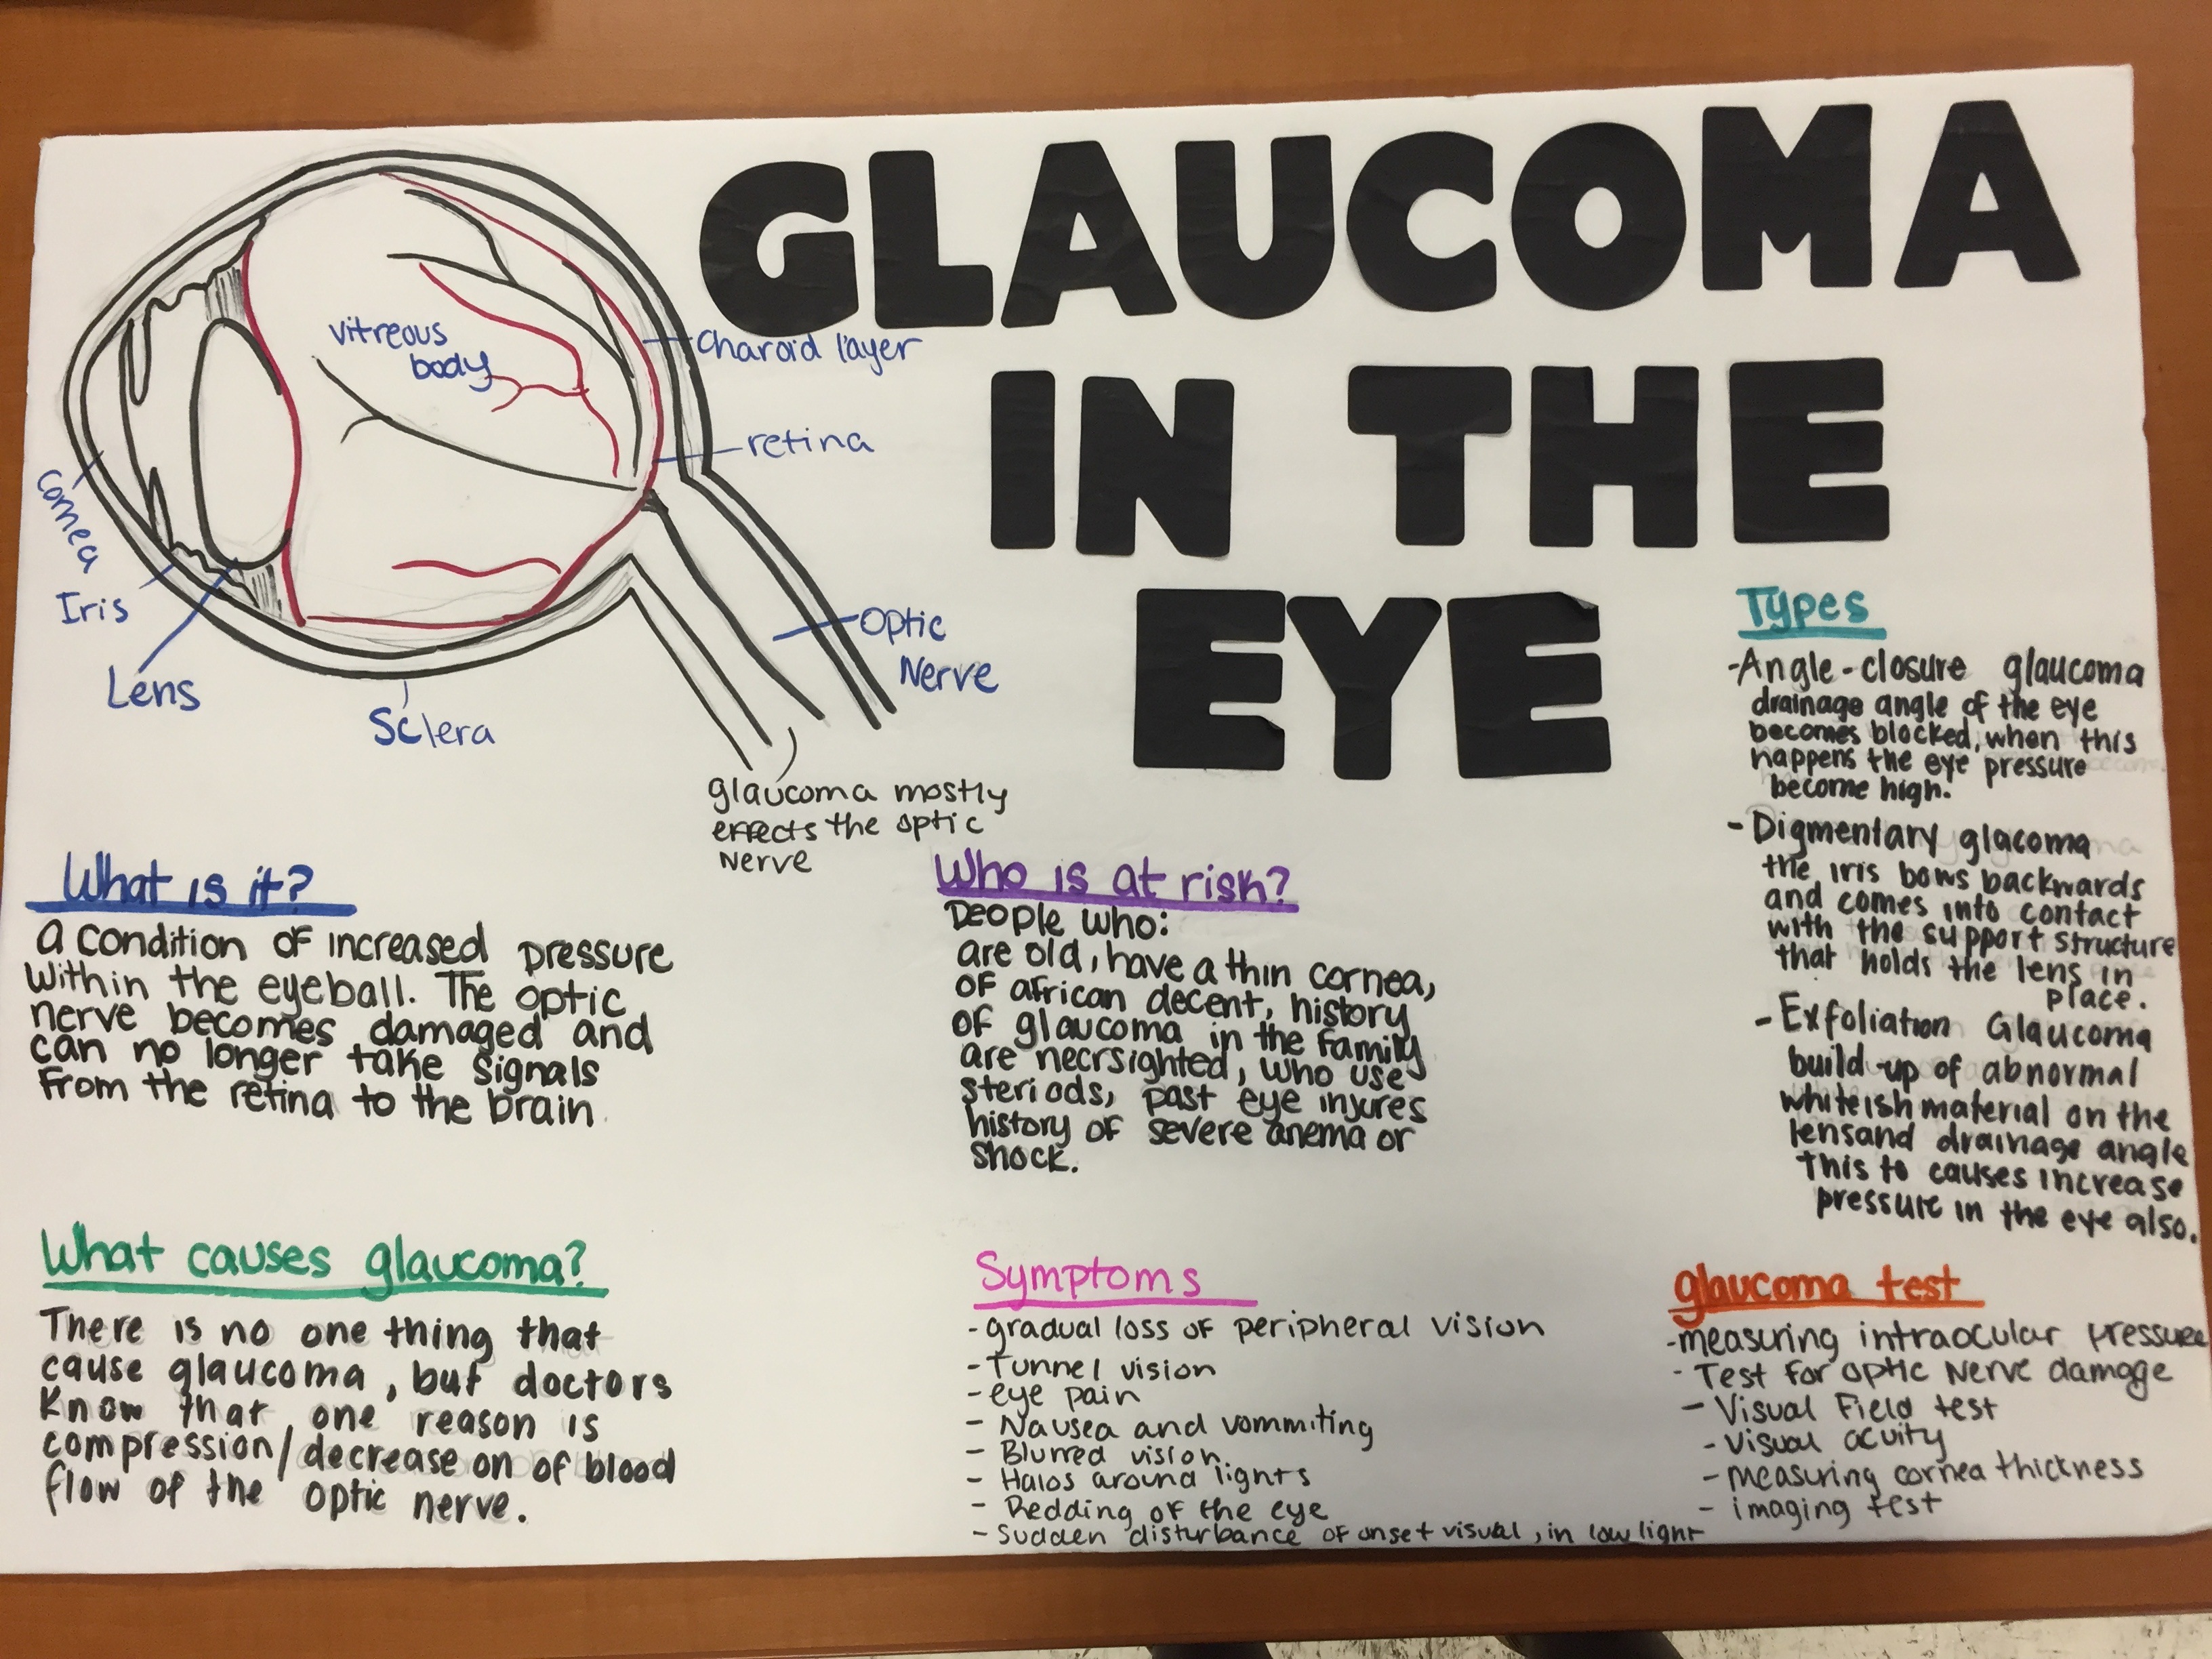 GLAUCOMA
IN THE
EYE
vitreous
body
charoid layer
retina
cornea
Iris
Lens
Sclera
Optic
Nerve
glaucoma mostly
effects the optic
nerve
What is it?
a condition of increased pressure
within the eyeball. The optic
nerve becomes damaged and
can no longer take signals
from the retina to the brain.
What causes glaucoma?
There is no one thing that
cause glaucoma, but doctors
know that one reason is
compression/decrease on of blood
flow of the optic nerve.
Who is at risk?
People who:
are old, have a thin cornea,
of african decent, history
of glaucoma in the family
are necrsighted, who use
steriods, past eye injures
history of severe anema or
shock.
Symptoms
-gradual loss of peripheral vision
-Tunnel vision
-eye pain
- Nausea and vommiting
- Blurred vision.
- Halos around lights
- Redding of the eye
- Sudden disturbance of onset visual, in low light
Types
-Angle-closure glaucoma
drainage angle of the eye
becomes blocked, when this
happens the eye pressure
become high.
- Pigmentary glacoma
the iris bows backwards
and comes into contact
with the support structure
that holds the lens in
place.
- Exfoliation Glaucoma
build-up of abnormal
whiteish material on the
lens and drainage angle
this to causes increase
pressure in the eye also.
glaucoma test
-measuring intraocular pressure
- Test for optic Nerve damage
- Visual Field test
- Visual acuity
- measuring cornea thickness
- imaging test